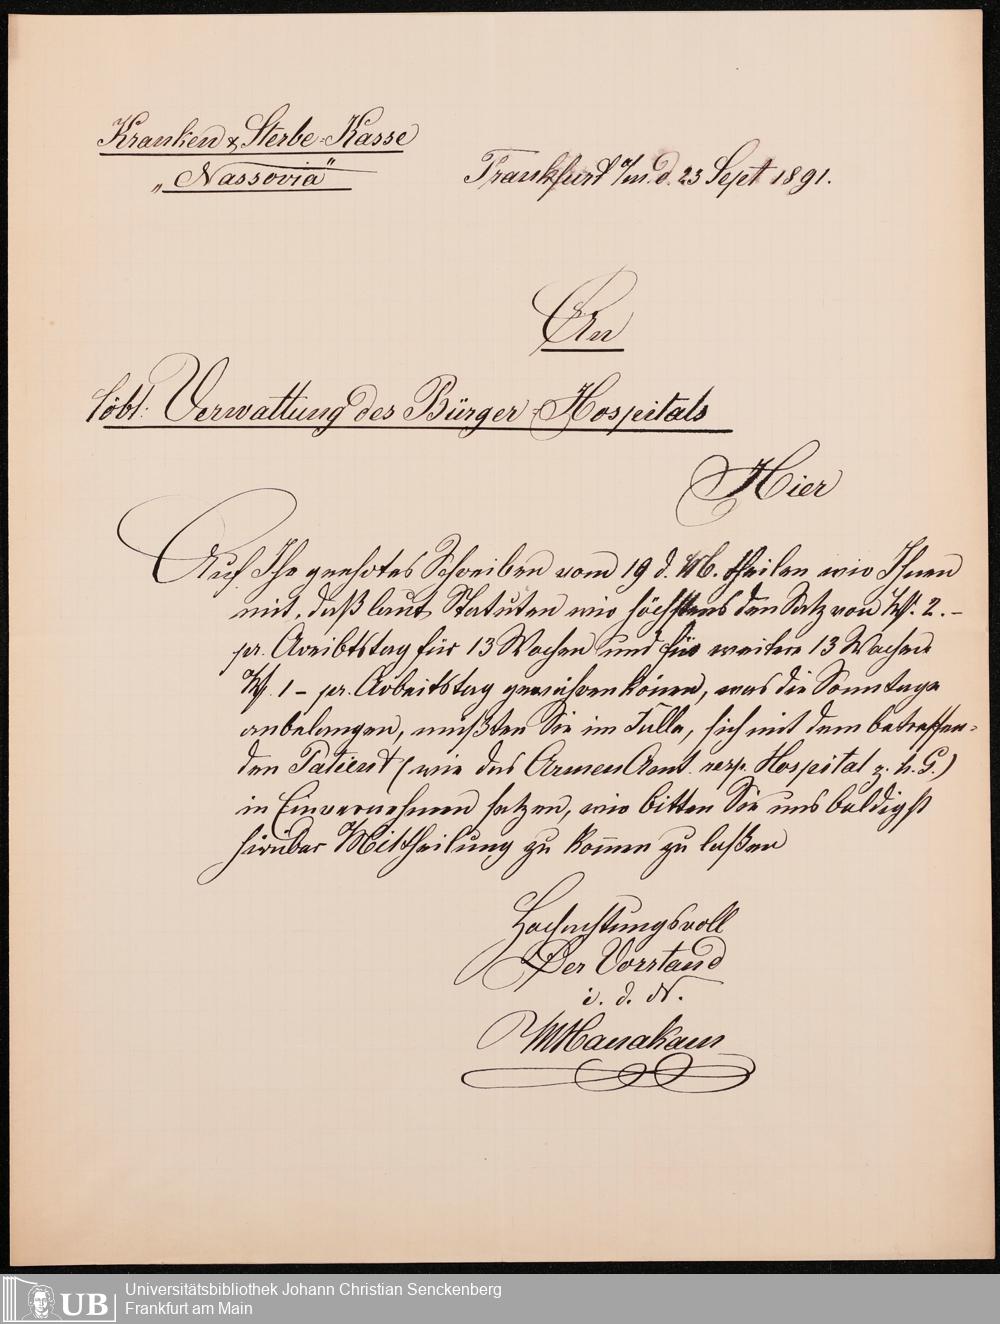 Kranken & Sterbe-Kasse
„Nassovia"
Frankfurt a/m. d. 23 Sept 1891.
An
löbl: Verwaltung des Bürger-Hospitals
Hier
Auf Ihr geehrtes Schreiben vom 19 d. M. theilen wir Ihnen
mit, daß laut Statuten wir höchstens den Satz von M. 2.–
pr. Areibtstag für 13 Wochen und für weitere 13 Wochen
M. 1 – pr. Arbeitstag gewähren können, was die Sonntage
anbelangen, müßten Sie im Falle, sich mit dem betreffen-
den Patient (wie das Armen Amt resp. Hospital z. h. G.)
in Einvernehmen setzen, wir bitten Sie uns baldigst
hirüber Mittheilung zu kommen zu laßen
Hochachtungsvoll
Der Vorstand
i. d. N.
Universitätsbibliothek Johann Christian Senckenberg
Frankfurt am Main
UB